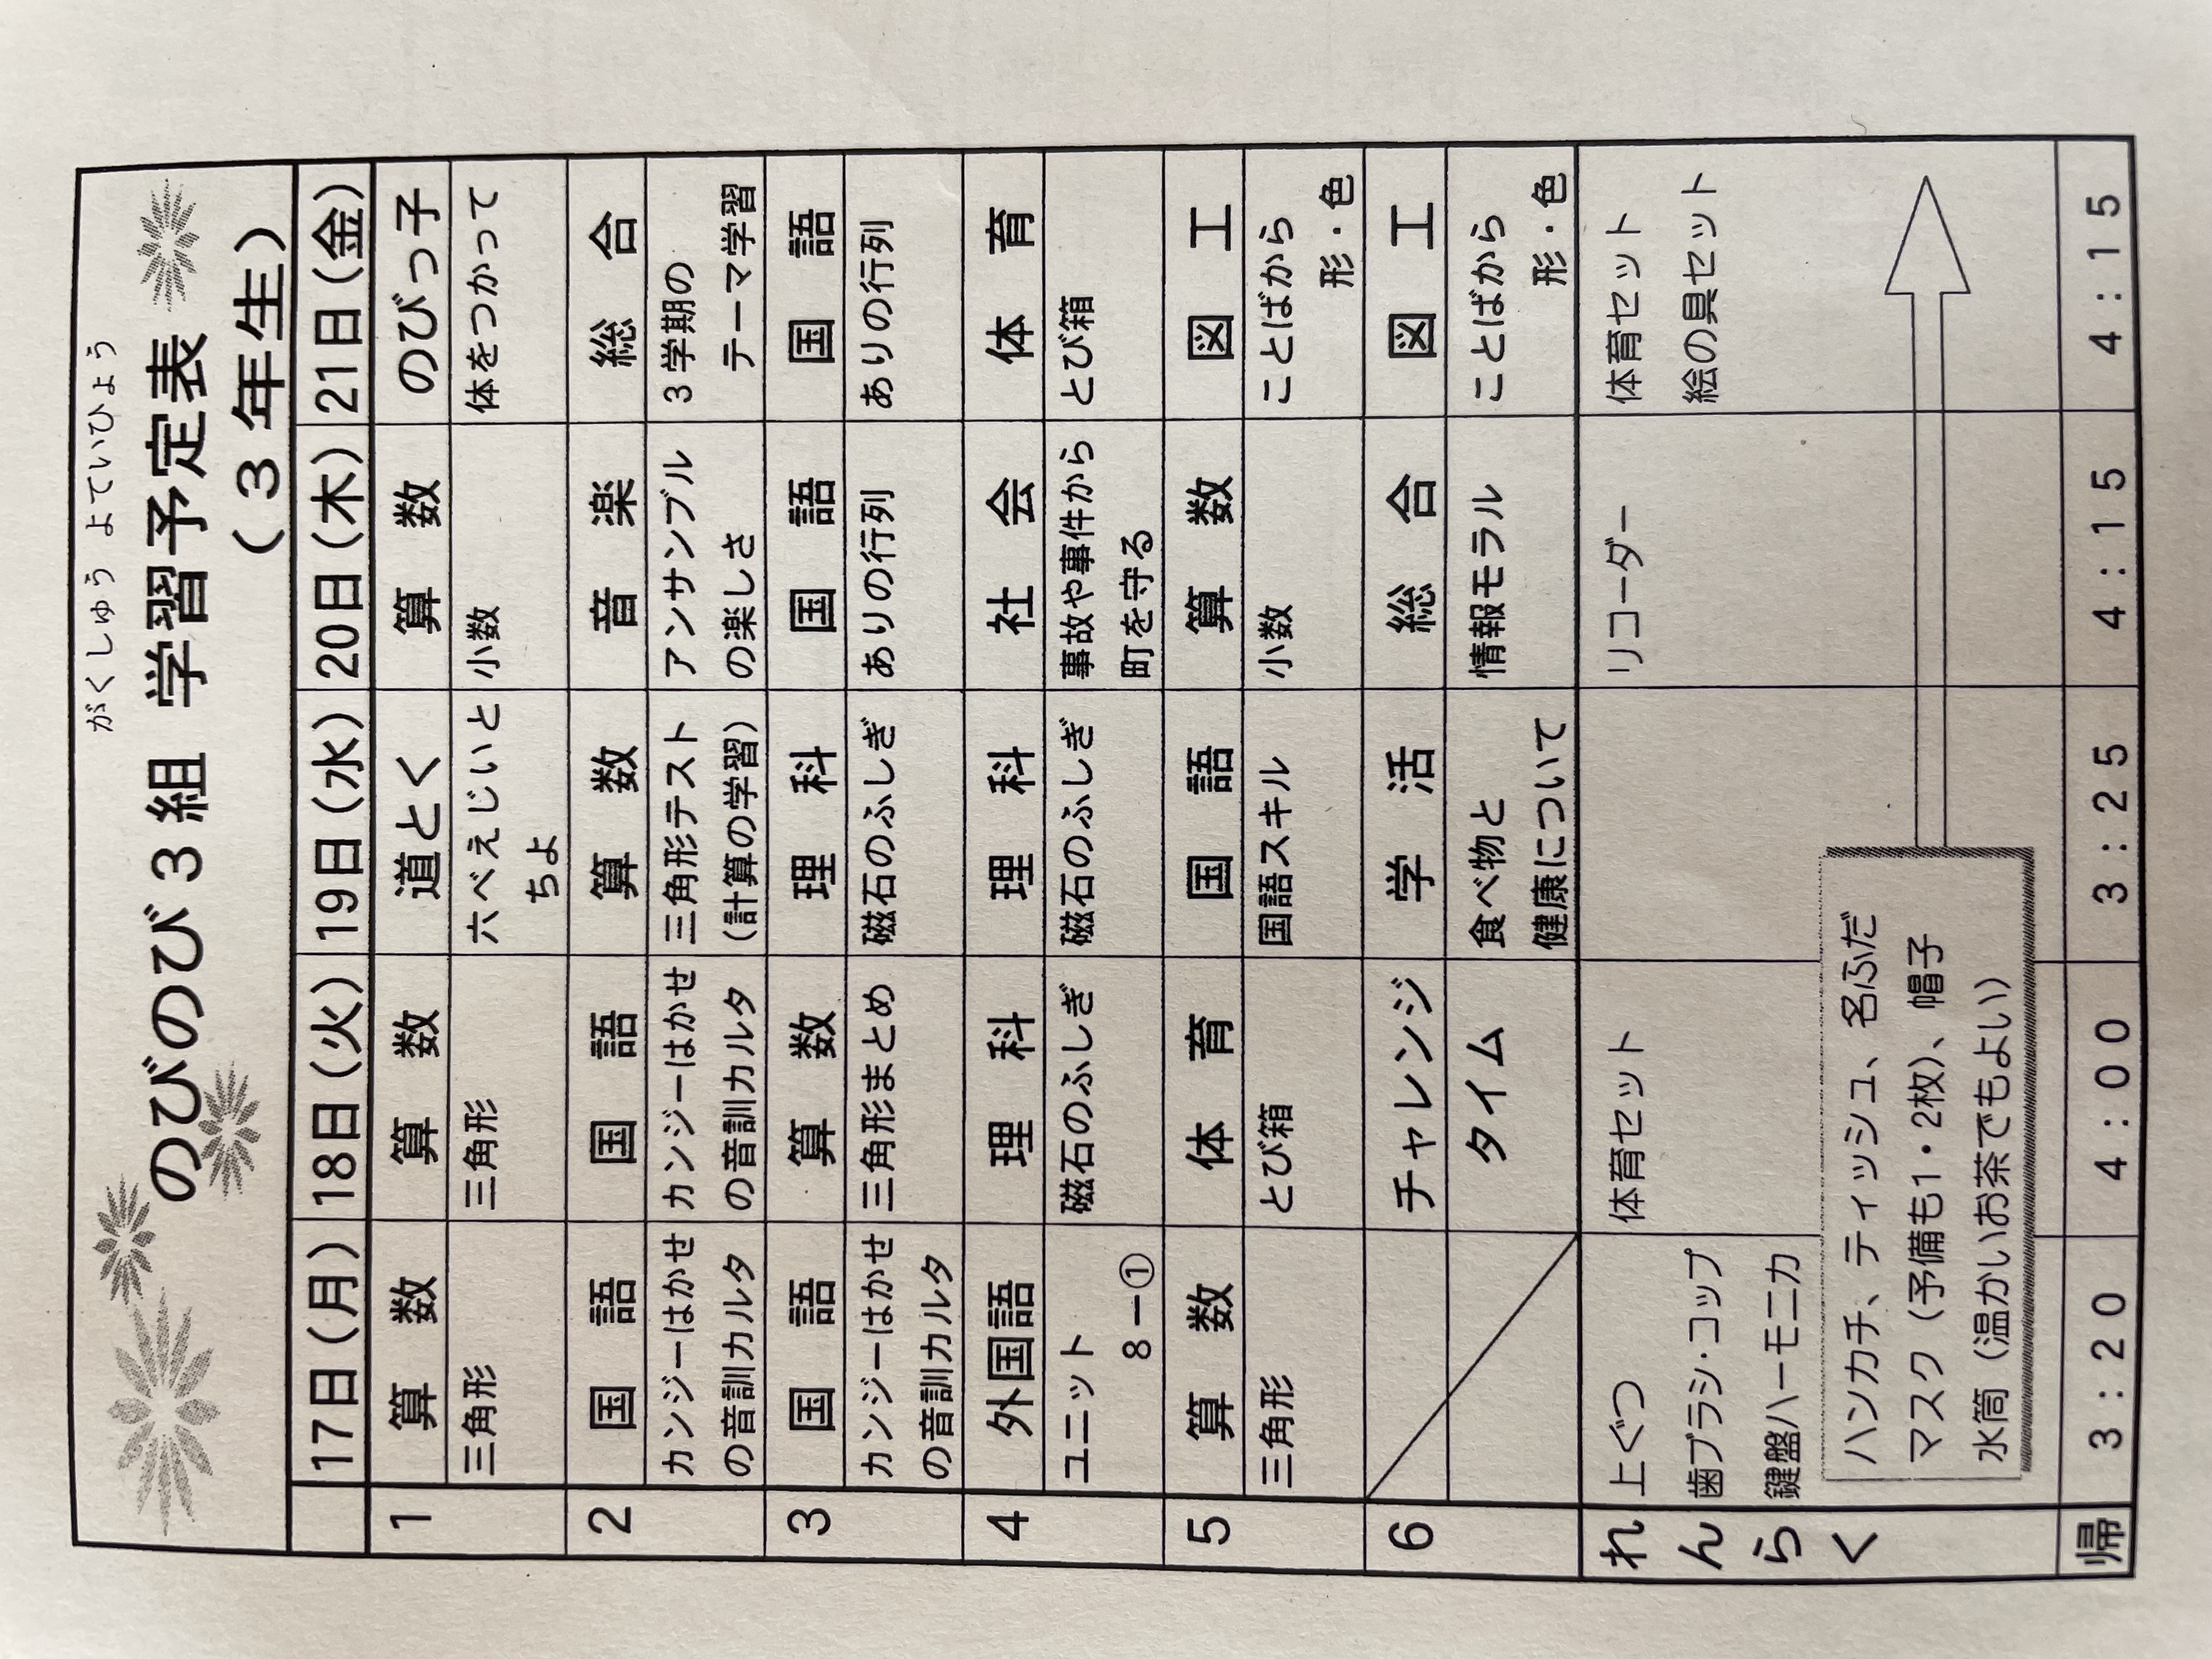 がくしゅう よていひょう
のびのび３組 学習予定表
（３年生）
17日（月） 18日（火） 19日（水） 20日（木） 21日（金）
1 算数 算数 道とく 算数 のびっ子
三角形 三角形 六べえじいと 小数 体をつかって
ちよ
2 国語 国語 算数 音楽 総合
カンジーはかせ カンジーはかせ 三角形テスト アンサンブル ３学期の
の音訓カルタ の音訓カルタ （計算の学習） の楽しさ テーマ学習
3 国語 算数 理科 国語 国語
カンジーはかせ 三角形まとめ 磁石のふしぎ ありの行列 ありの行列
の音訓カルタ
4 外国語 理科 理科 社会 体育
ユニット 磁石のふしぎ 磁石のふしぎ 事故や事件から とび箱
８－① 町を守る
5 算数 体育 国語 算数 図工
三角形 とび箱 国語スキル 小数 ことばから
形・色
6 チャレンジ 学活 総合 図工
タイム 食べ物と 情報モラル ことばから
健康について 形・色
れんらく 上ぐつ 体育セット リコーダー 体育セット
歯ブラシ・コップ 絵の具セット
鍵盤ハーモニカ
ハンカチ、ティッシュ、名ふだ
マスク（予備も1・2枚）、帽子
水筒（温かいお茶でもよい）
帰 3:20 4:00 3:25 4:15 4:15